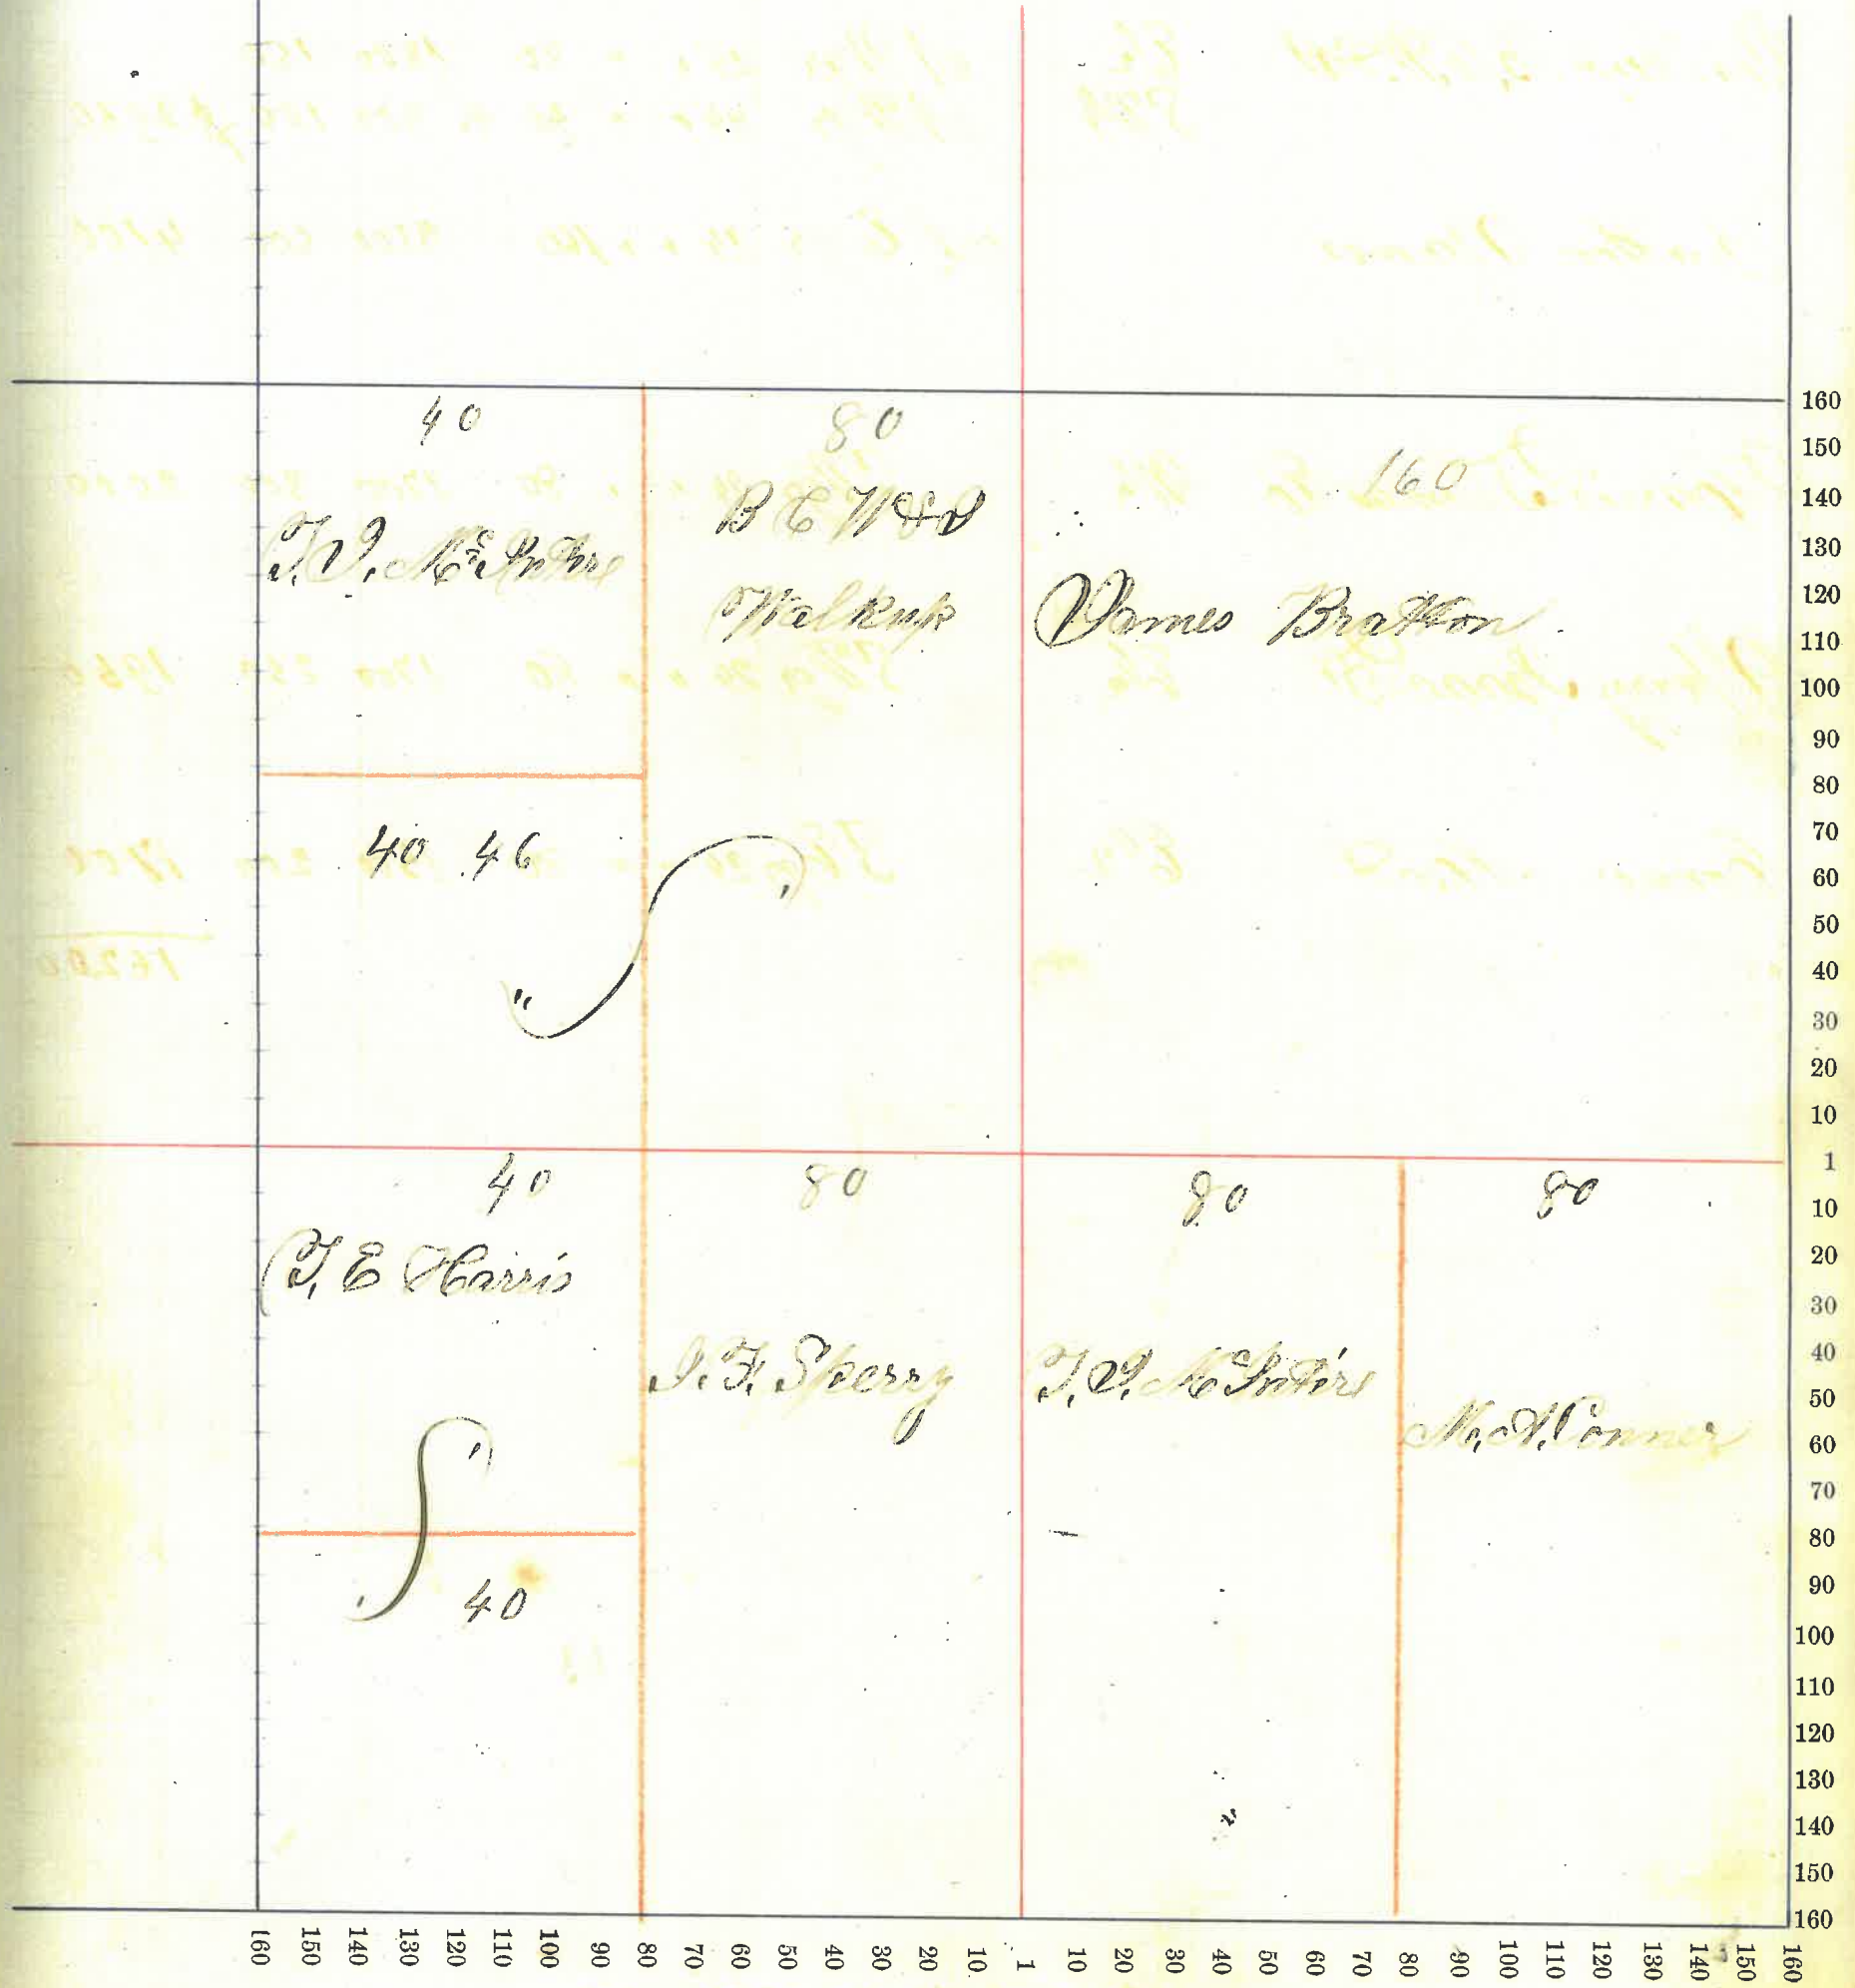 40
T. J. McIntire
80
B C W & D
Walkup
160
James Bratton
40 46
40
T. E Harris
40
80
J. F. Sperry
80
T. J. McIntire
80
M. A. Conner
160
150
140
130
120
110
100
90
80
70
60
50
40
30
20
10
1
10
20
30
40
50
60
70
80
90
100
110
120
130
140
150
160
160 150 140 130 120 110 100 90 80 70 60 50 40 30 20 10 1 10 20 30 40 50 60 70 80 90 100 110 120 130 140 150 160